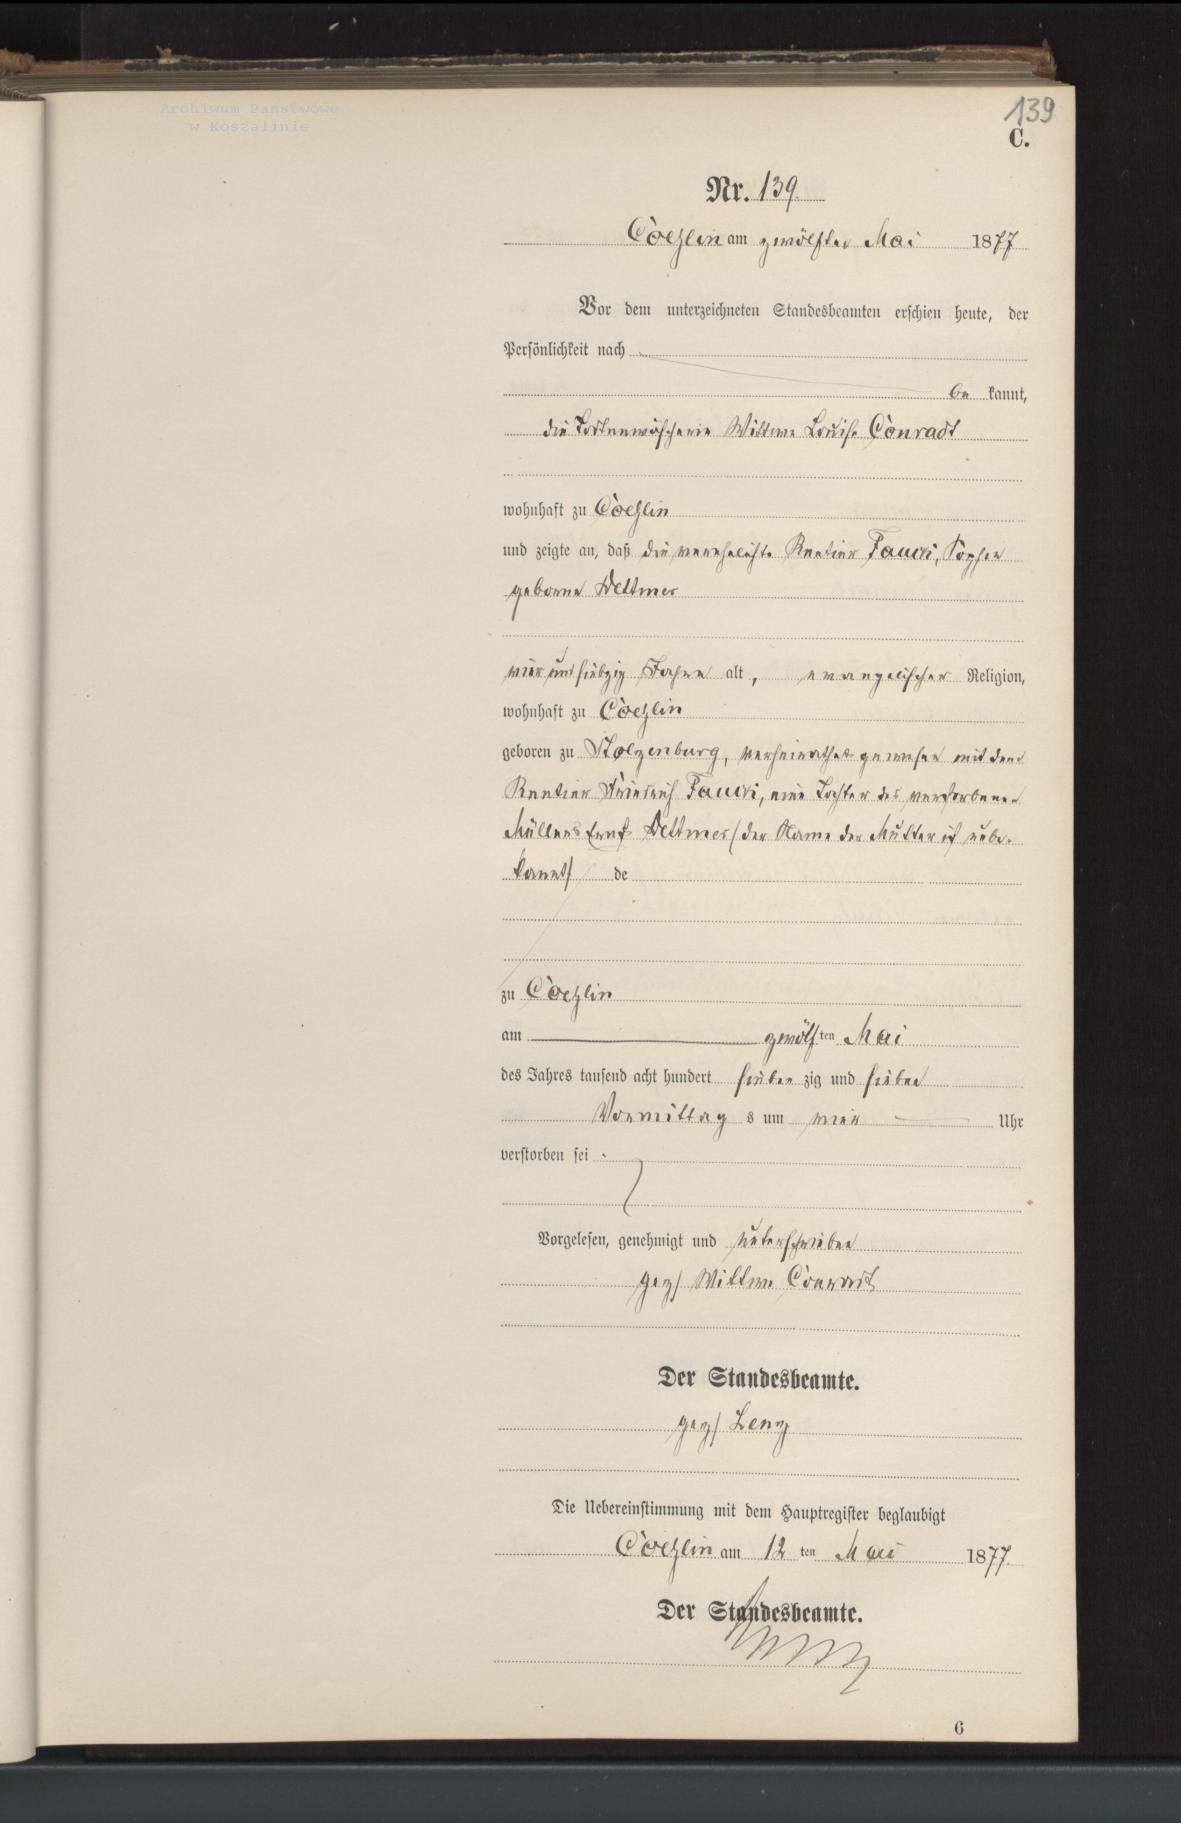 Archiwum Państwowe
w Koszalinie
139
C.
Nr. 139.
Coeslin am zwölften Mai 1877
Vor dem unterzeichneten Standesbeamten erschien heute, der
Persönlichkeit nach
be kannt,
die Todtenwäscherin Wittwe Louise Conradt
wohnhaft zu Coeslin
und zeigte an, daß die verehelichte Rentier Faucki, Sophie
geborne Dettmer
vier und siebzig Jahre alt, evangelischer Religion,
wohnhaft zu Coeslin
geboren zu Stolzenburg, verheirathet gewesen mit dem
Rentier Friedrich Faucki, eine Tochter des verstorbenen
Müllers Ernst Dettmer (der Name der Mutter ist unbe-
kannt) de
zu Coeslin
am zwölf ten Mai
des Jahres tausend acht hundert sieben zig und sieben
Vormittag s um vier Uhr
verstorben sei .
Vorgelesen, genehmigt und unterschrieben
gez/ Wittwe Conradt
Der Standesbeamte.
gez/ Lenz
Die Uebereinstimmung mit dem Hauptregister beglaubigt
Coeslin am 12 ten Mai 1877.
Der Standesbeamte.
Lenz
6